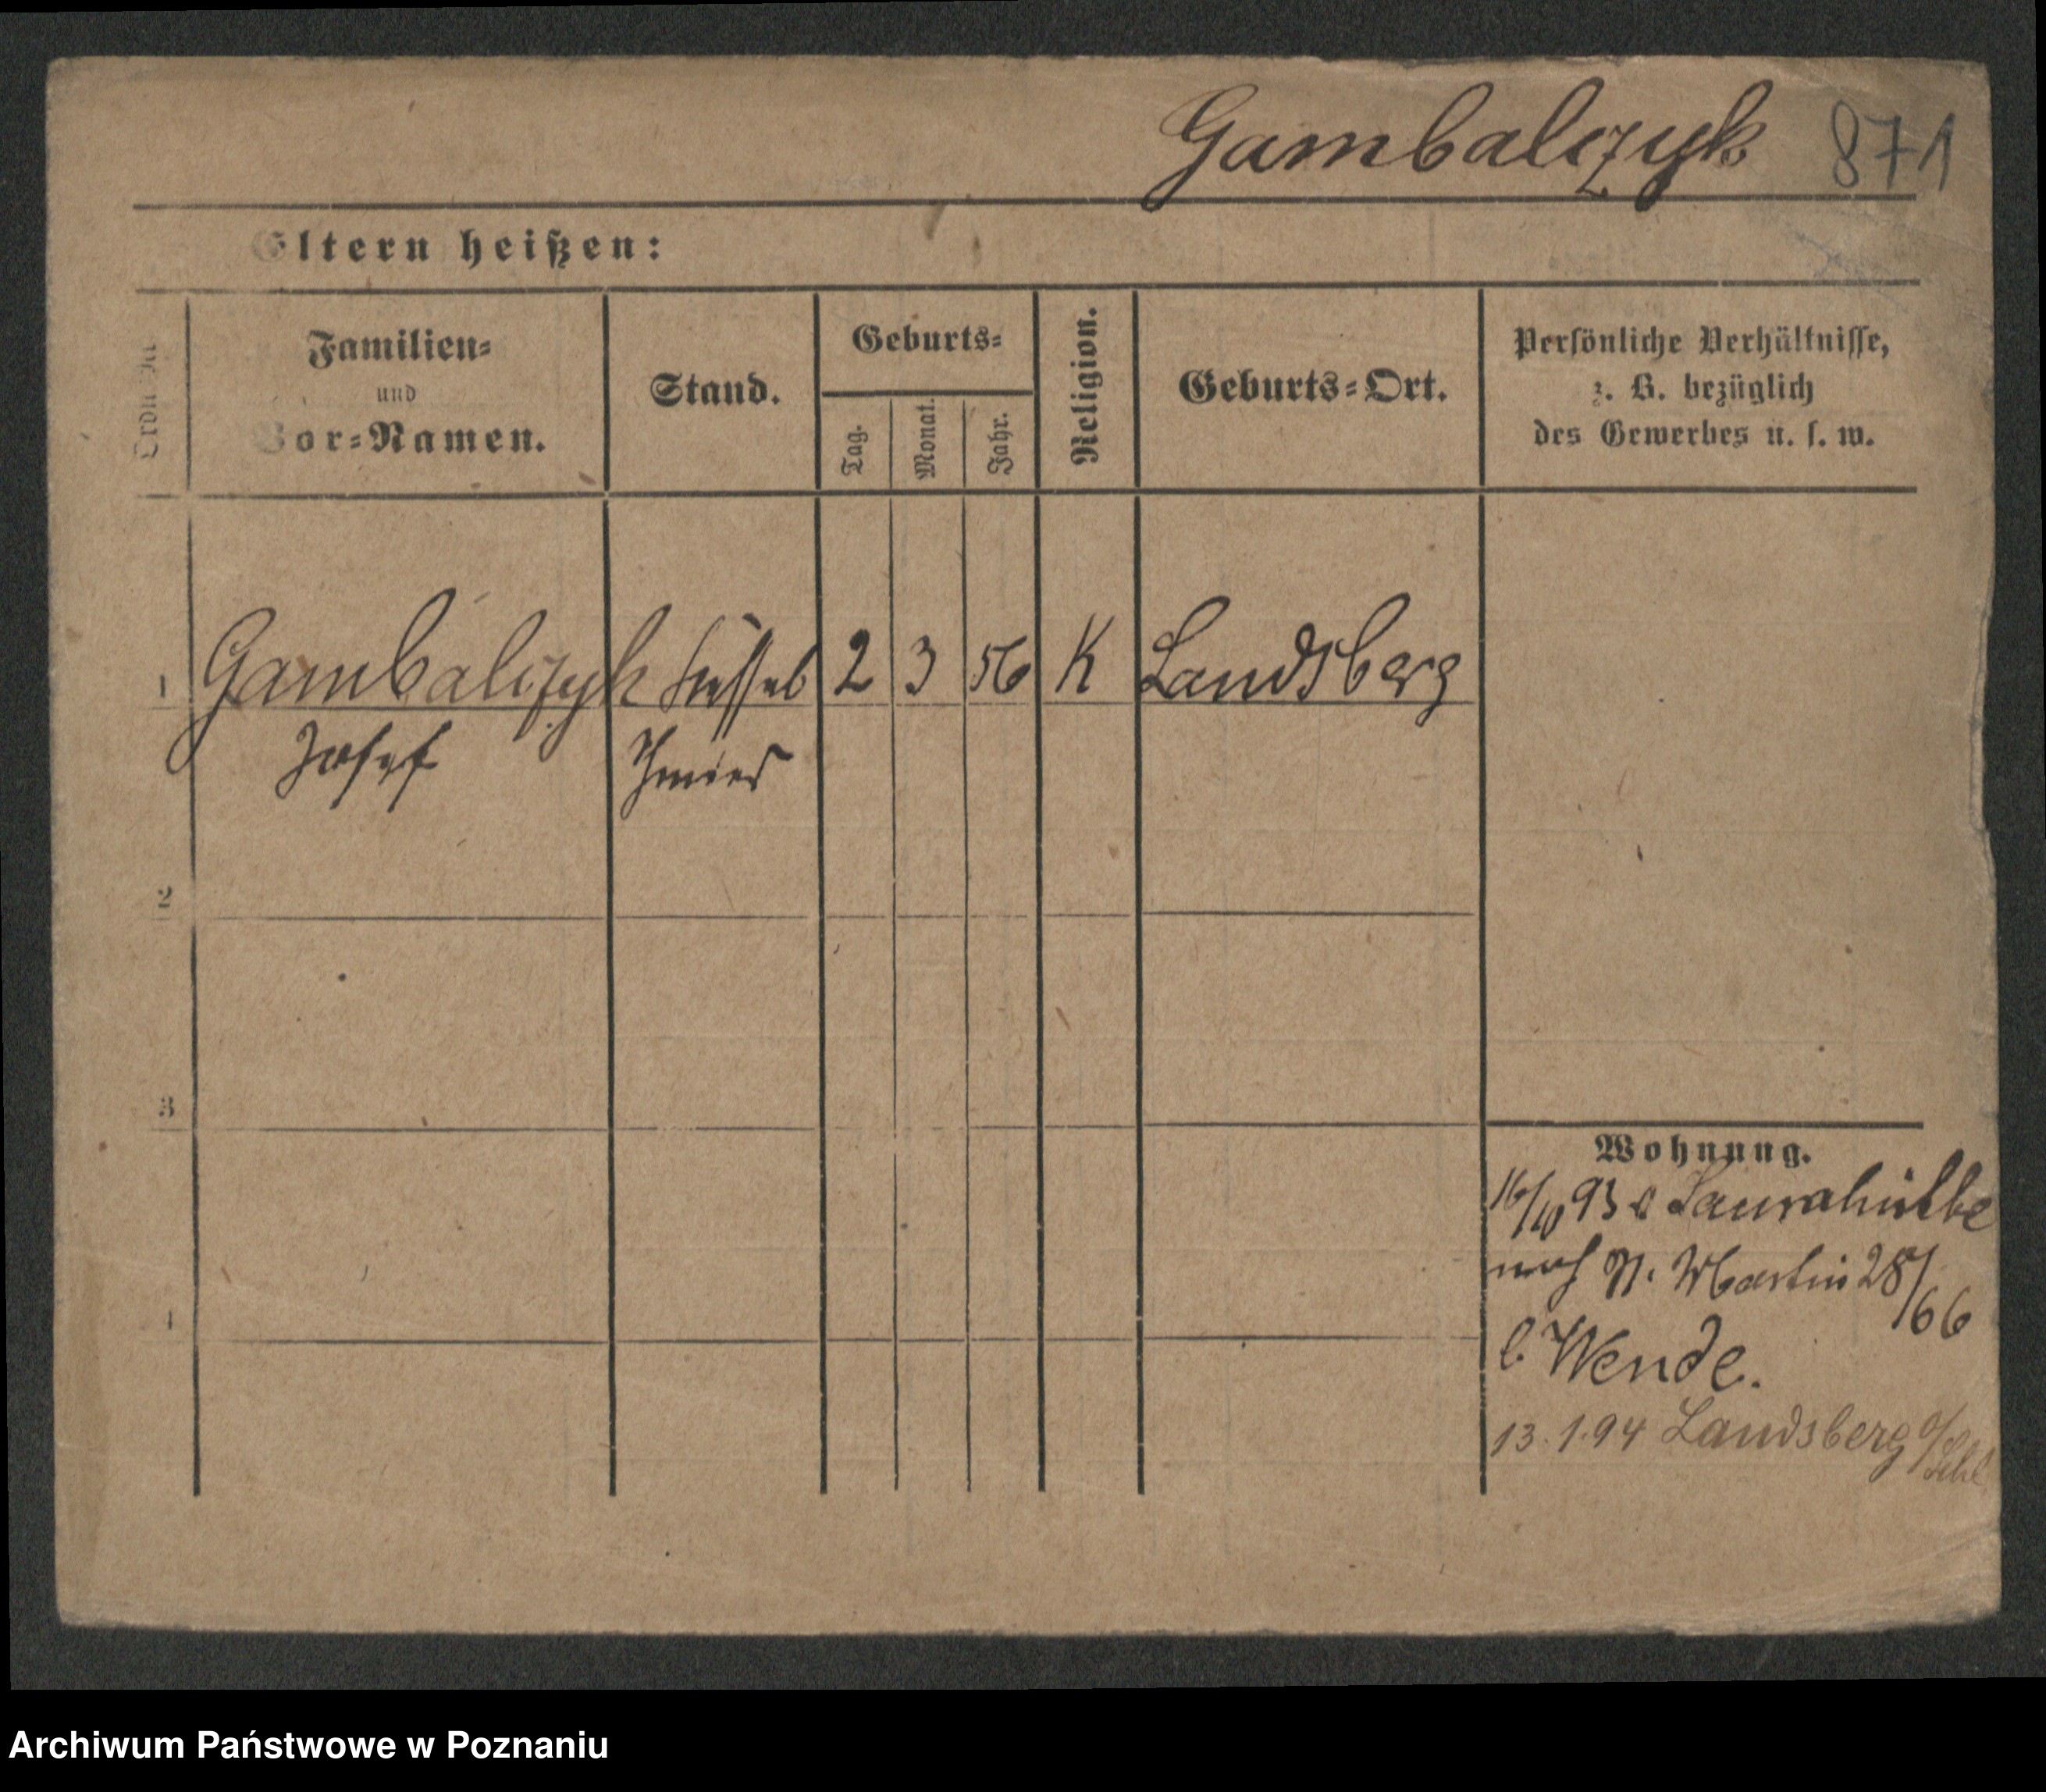 Gambalczyk 871
Eltern heißen:
Familien=
und
Vor=Namen.
Stand.
Geburts=
Tag.
Monat.
Jahr.
Religion.
Geburts=Ort.
Persönliche Verhältnisse,
z. B. bezüglich
des Gewerbes u. s. w.
1 Gambalczyk Kessel 2 3 56 K Landsberg
Josef Schmied
2
3
Wohnung.
16/10 93 Laurahütte
nach St. Martin 28/66
b. Wende.
13.1.94 Landsberg O/Schl
Archiwum Państwowe w Poznaniu